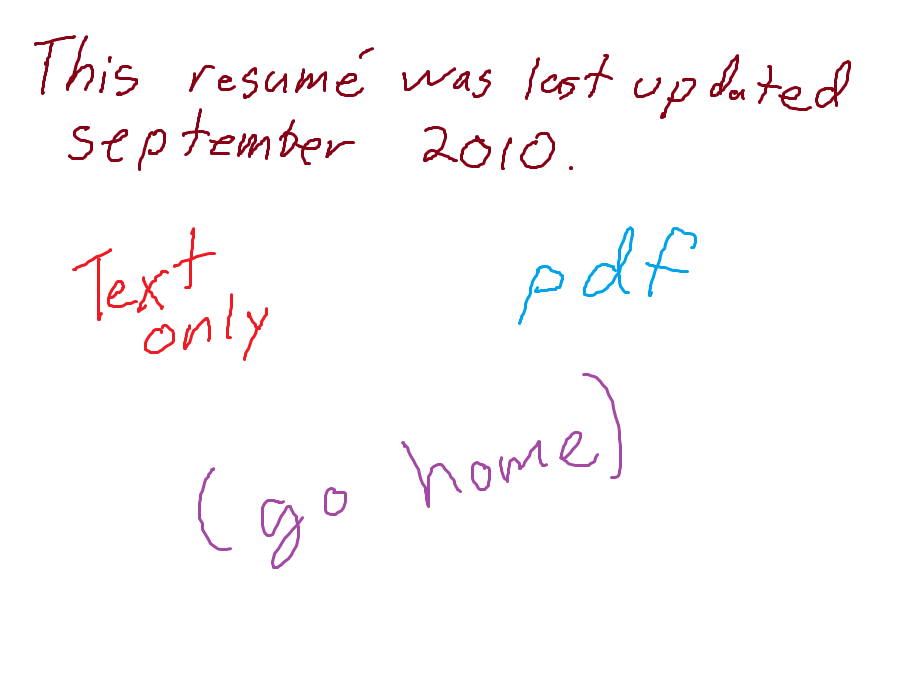 This resumé was last updated
september 2010.
Text
only
pdf
(go home)